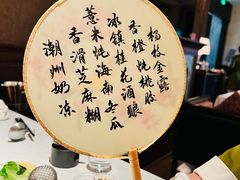 杨枝金露
香橙炖桃胶
冰镇桂花酒酿
薏米炖海南冬瓜
香滑芝麻糊
潮州奶冻